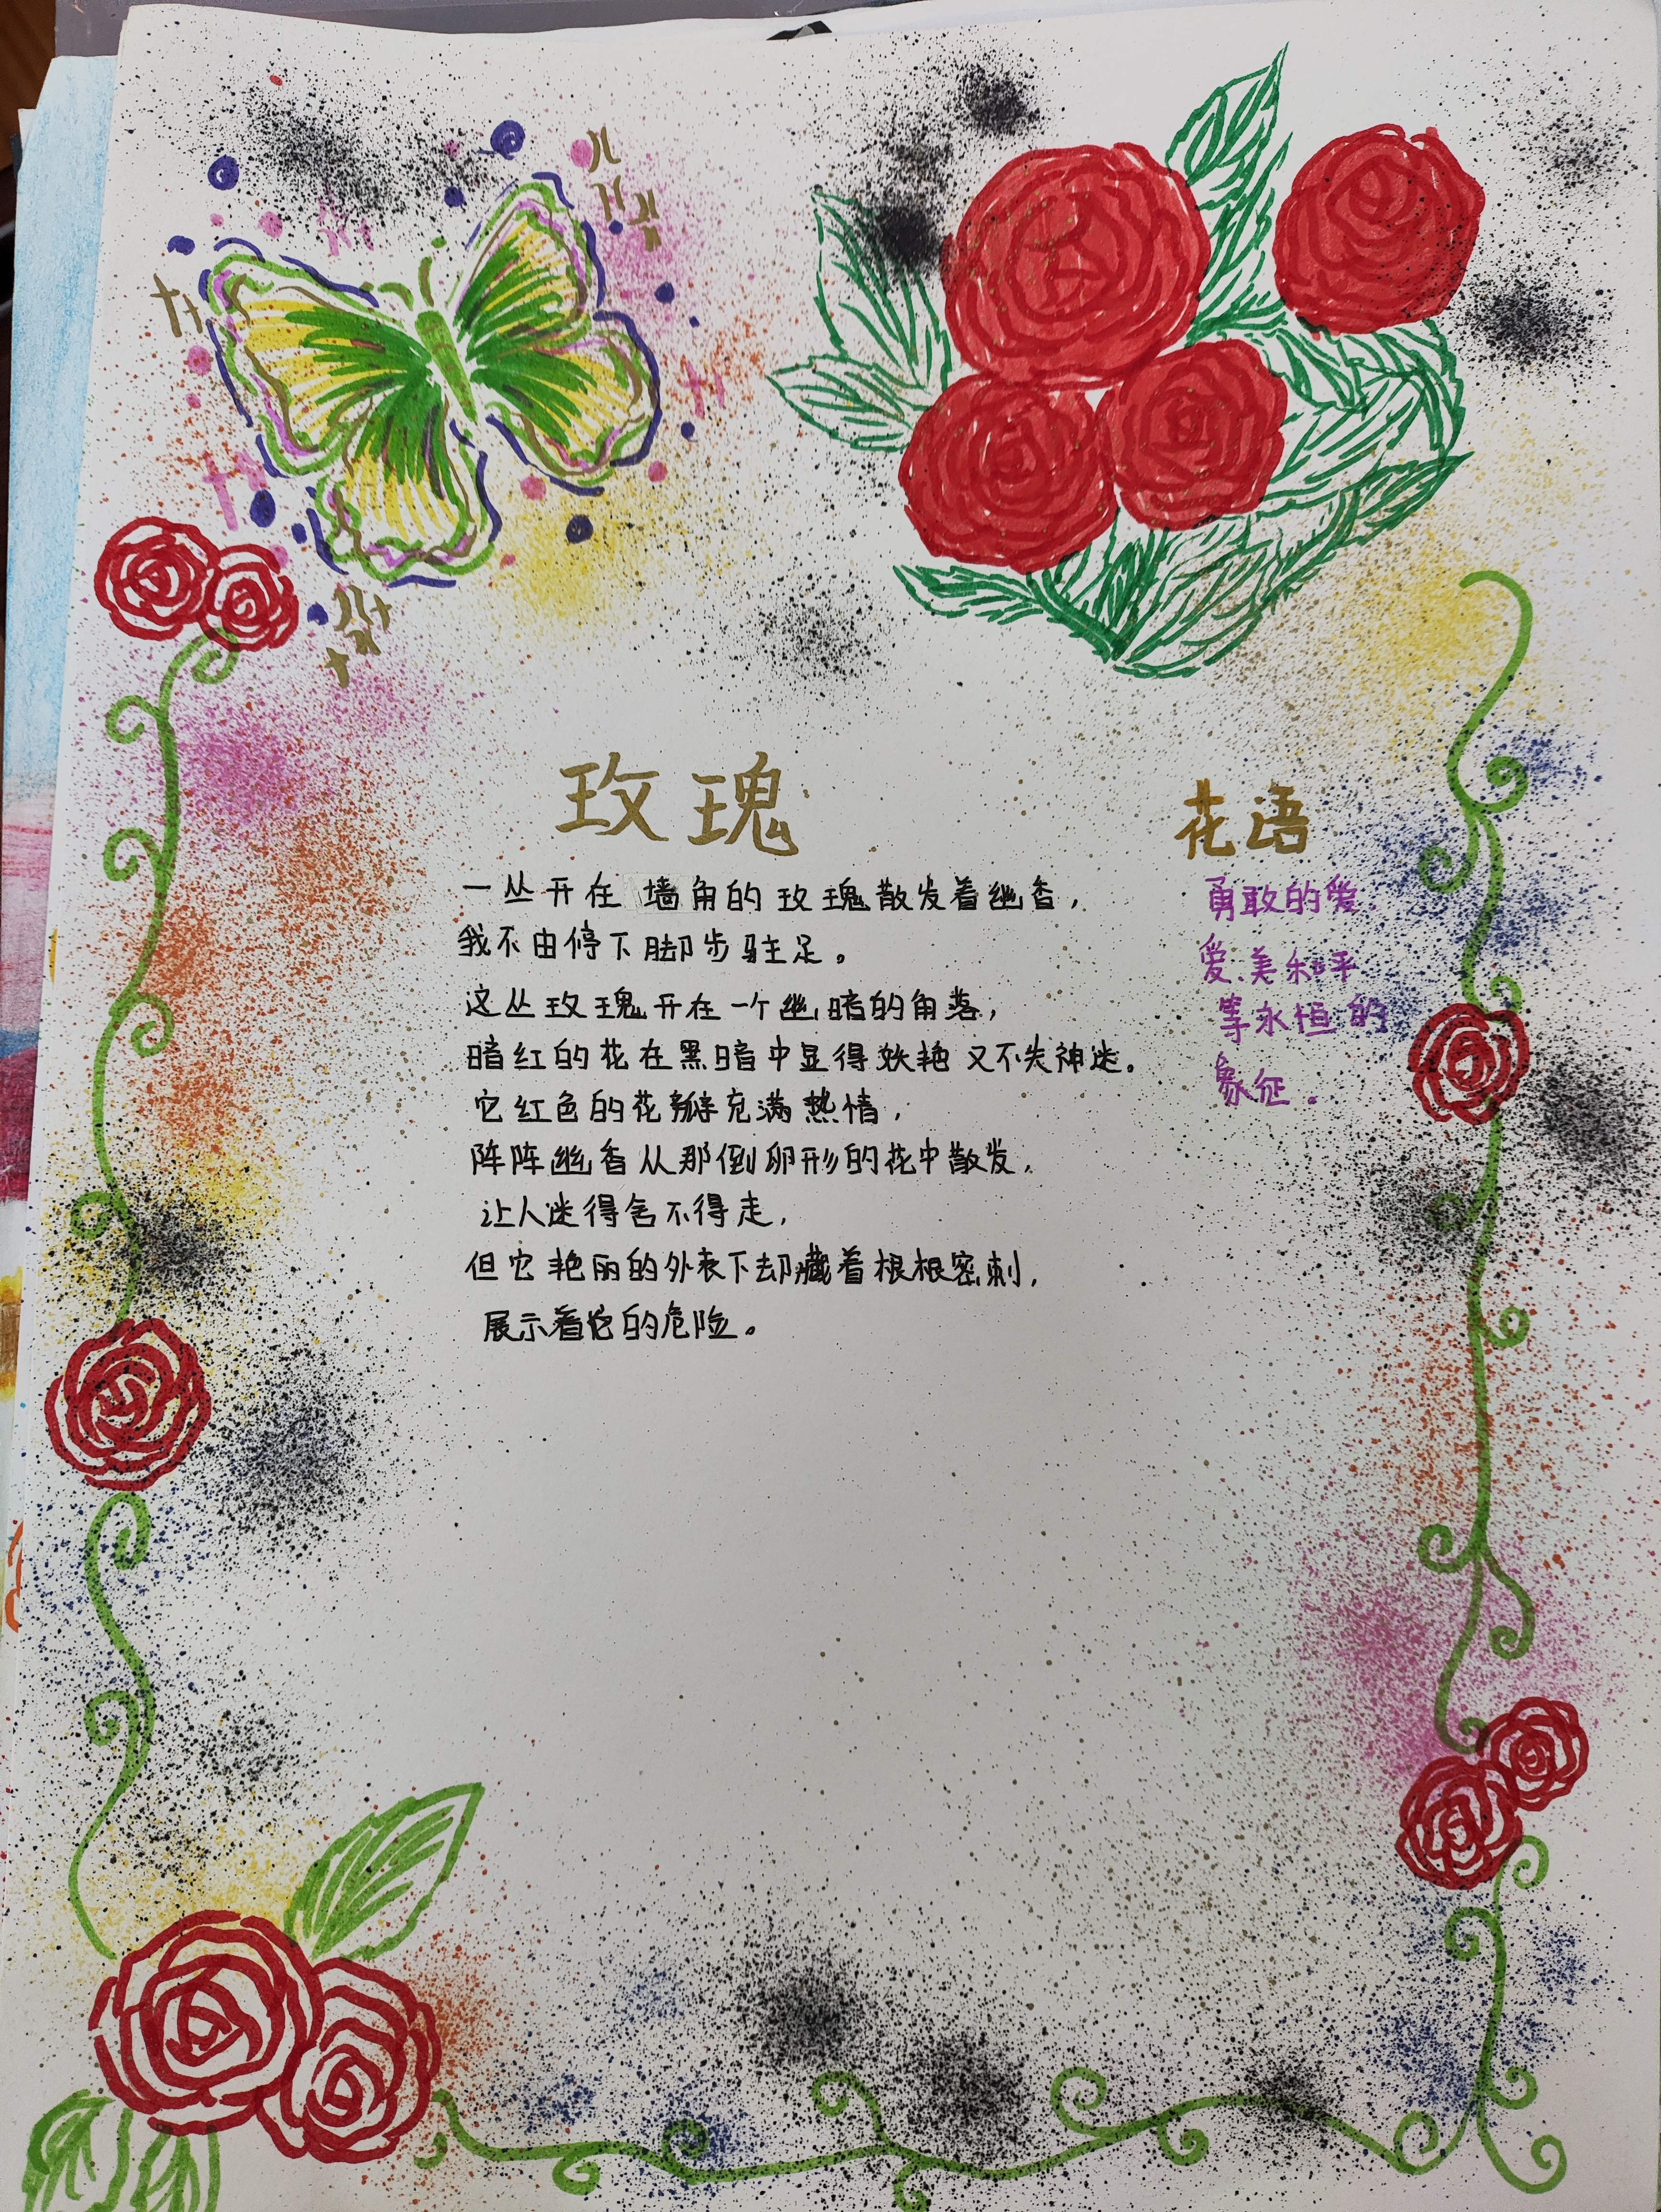 玫瑰
一丛开在墙角的玫瑰散发着幽香，
我不由停下脚步驻足。
这丛玫瑰开在一个幽暗的角落，
暗红的花在黑暗中显得妖艳又不失神迷。
它红色的花瓣充满热情，
阵阵幽香从那倒卵形的花中散发，
让人迷得舍不得走，
但它艳丽的外表下却藏着根根密刺，
展示着它的危险。
花语
勇敢的爱.
爱、美和平
等永恒的
象征。